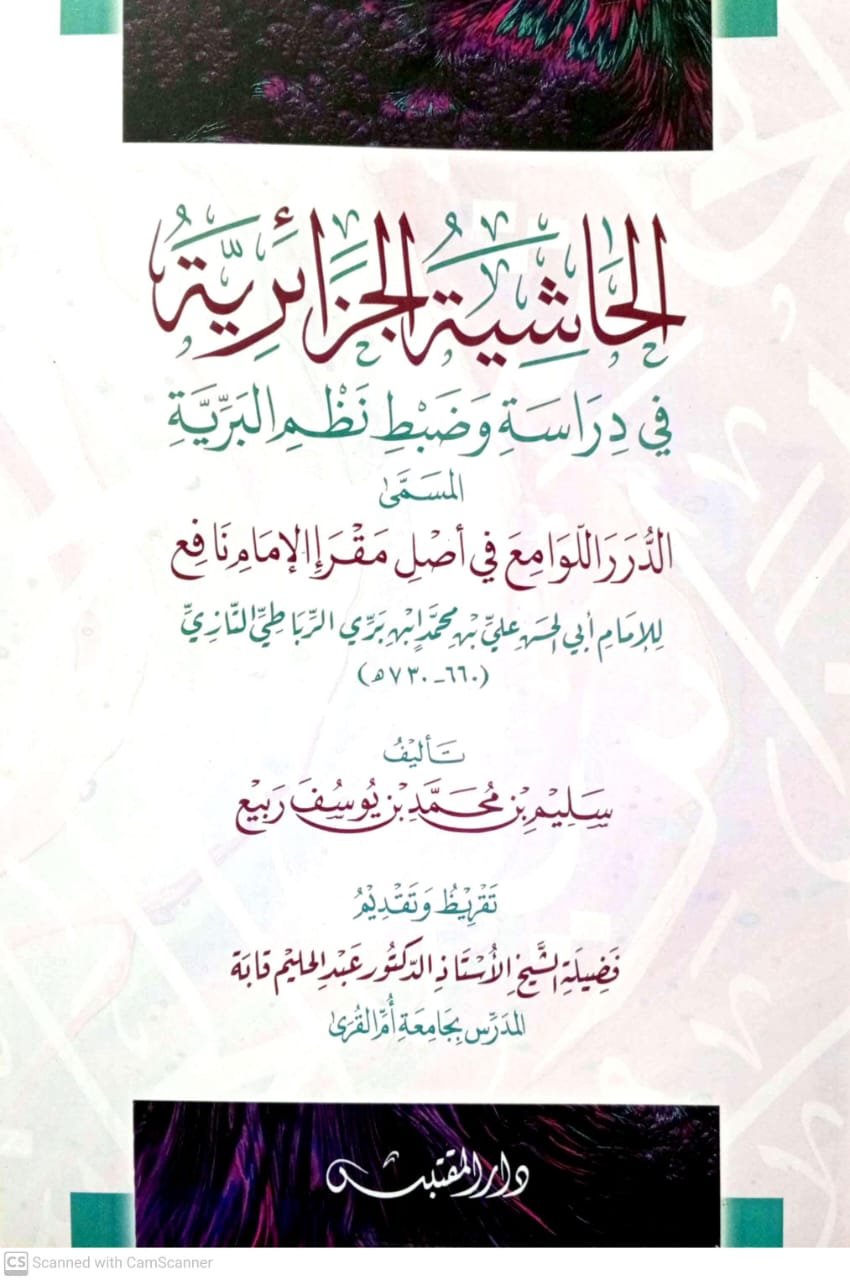 الحَاشِيَةُ الجَزَائِرِيَّةُ
فِي دِرَاسَةِ وَضَبْطِ نَظْمِ البَرِّيَّةِ
المُسَمَّىٰ
الدُّرَرَ اللَّوَامِعَ فِي أَصْلِ مَقْرَإِ الإِمَامِ نَافِعٍ
لِلإِمَامِ أَبِي الحَسَنِ عَلِيِّ بْنِ مُحَمَّدٍ ابْنِ بَرِّي الرِّبَاطِيِّ التَّازِيِّ
(٦٦٠ـ٧٣٠هـ)
تَأليفُ
سَلِيْمِ بْنِ مُحَمَّدِ بْنِ يُوسُفَ رَبِيْعٍ
تَقْرِيْظُ وَتَقْدِيْمُ
فَضِيلَةِ الشَّيْخِ الأُسْتَاذِ الدُّكْتُور عَبْدِ الحَلِيْم قَابَة
المُدَرِّس بِجَامِعَةِ أُمِّ القُرَىٰ
دار المقتبس
CS Scanned with CamScanner